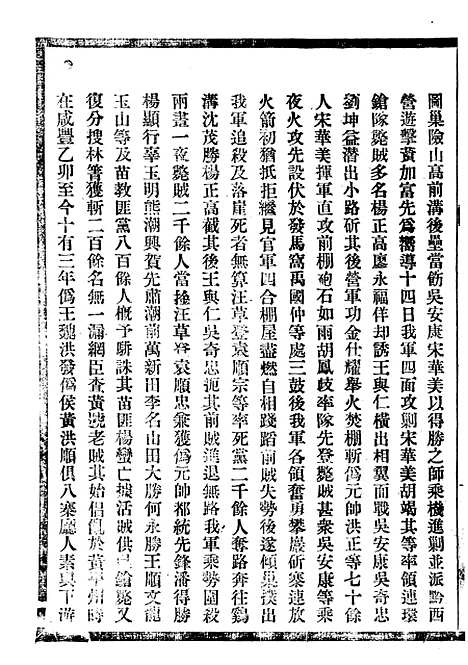 圖巢險山高前溝後壘當飭吳安康宋華美以得勝之師乘機進剿並派黔西
營遊擊黃加富先為嚮導十四日我軍四面攻剿宋華美胡竭其等率領連環
鎗隊斃賊多名楊正高廖永福佯却誘王與仁橫出相翼面戰吳安康吳奇忠
劉坤益潛出小路斫其後營軍功金仕耀舉火焚棚斬偽元帥洪正等七十餘
人宋華美揮軍直攻前棚砲石如雨胡鳳岐率隊先登斃賊甚衆吳安康等乘
夜火攻先設伏於發馬窩禹國仲等處三鼓後我軍各領奮勇攀巖斫寨齊擲
火箭初猶抵拒繼見官軍四合棚屋盡燃自相踐蹈前賊失勢後遂傾巢撲出
我軍追殺及落崖死者無算汪草登袁順宗等率死黨二千餘人奪路奔往鷄
溝沈茂勝楊正高截其後王與仁吳奇忠扼其前賊進退無路我軍乘勢圍殺
兩晝一夜斃賊二千餘人當拴汪草登袁順忠兼獲偽元帥都統先鋒潘得勝
楊顯行辜玉明熊潮興賀先肅潮前萬新田李名山田大勝何永勝王順文龍
玉山等及苗教匪黨八百餘人槪予駢誅其苗匪楊蠻亡據活賊供已鎗斃又
復分搜林箐獲斬二百餘名無一漏網臣查黃號老賊其始倡亂於黃平州時
在咸豐乙卯至今十有三年偽王魏洪發偽侯黃洪順俱八寨廳人素與下游